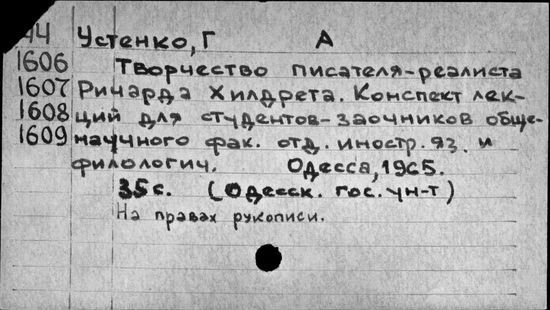 44 Устенко, Г А
1606 Творчество писателя-реалиста
1607 Ричарда Хилдрета. Конспект лек-
1608 ций для студентов-заочников обще-
1609 научного фак. отд. иностр. яз. и
филологич. Одесса, 1965.
35 с. (Одесск. гос. ун-т)
На правах рукописи.